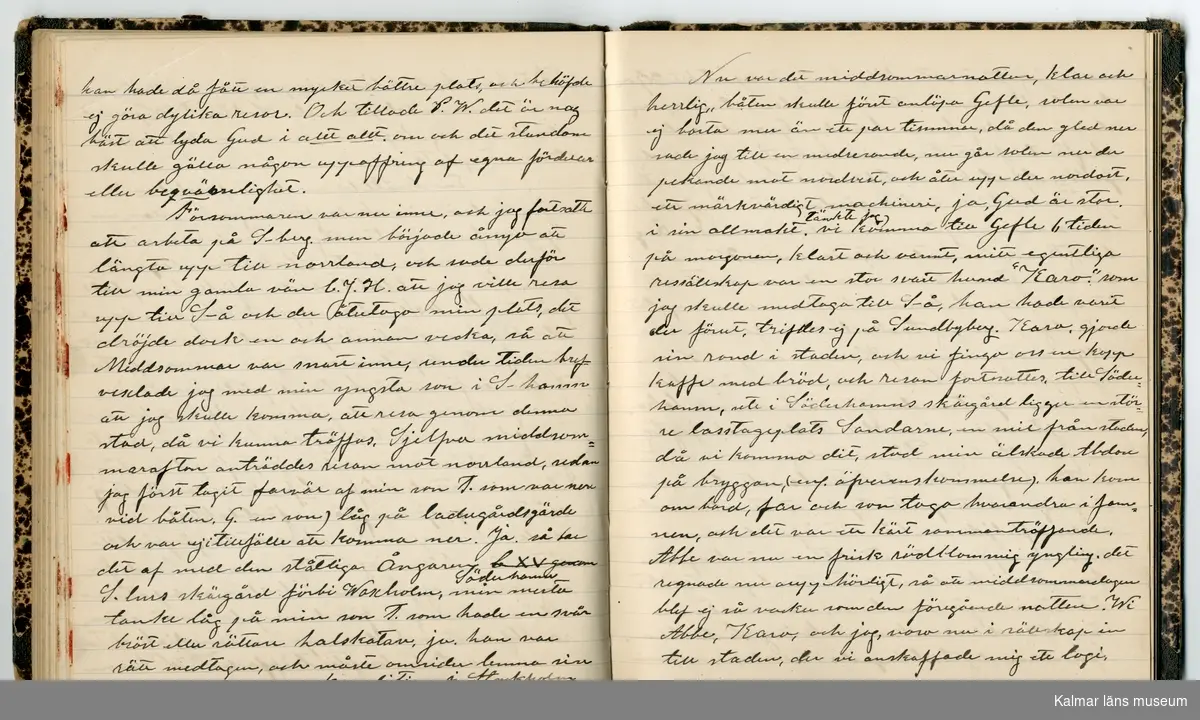 han hade då fått en mycket bättre plats, och behöfde
ej göra dylika resor. Och tillade P. W. det är nog
bäst att lyda Gud i allt allt. om och det stundom
skulle gälla någon uppoffring af egna fördelar
eller beqvämlighet.
Försommaren var nu inne, och jag fortsatte
att arbeta på S-berg. men började ånyo att
längta upp till norrland, och sade derför
till min gamla vän C. J. H. att jag ville resa
upp till S-å och der återtaga min plats, det
dröjde dock en och annan vecka, så att
Middsommar var snart inne, under tiden bref-
vexlade jag med min yngsta son i S-hamn
att jag skulle komma, att resa genom denna
stad, då vi kunna träffas. Sjelfva middsom=
marafton anträddes resan mot norrland, sedan
jag först tagit farväl af min son T. som var nere
vid båten. G. en son) låg på ladugårdsgärde
och var ej i tillfälle att komma ner. Ja, så bar
det af med den ståtliga Ångaren, genom
Söderhamn
S-lms skärgård förbi Waxholm, min mesta
tanke låg på min son T. som hade en svår
bröst eller rättare halskatarr, ja. han var
rätt medtagen, och måste omsider lemna sin
i Stockholm
Nu var det middsommarnatten, klar och
herrlig, båten skulle först anlöpa Gefle, solen var
ej borta mer än ett par timmar, då den gled ner
sade jag till en medresande, nu går solen ner der
pekande mot nordvest, och åter upp der nordost,
ett märkvärdigt machineri, ja, Gud är stor.
tänkte jag)
i sin allmakt. vi komma till Gefle 6 tiden
på morgonen, klart och varmt, mitt egentliga
ressällskap var en stor svart hund "Karo". som
jag skulle medtaga till S-å, han hade varit
der förut, trifdes ej på Sundbyberg. Karo, gjorde
sin rond i staden, och vi fingo oss en kopp
kaffe med bröd, och resan fortsattes, till Söder=
hamn, ute i Söderhamns skärgård ligger en stör=
re lasstageplats Sandarne, en mil från staden,
då vi komma dit, stod min älskade Abdon
på bryggan, (enl. äfverenskommelse), han kom
om bord, far och son togo hvarandra i fam=
nen, och det var ett kärt sammanträffande.
Abbe var nu en frisk rödblommig yngling. det
regnade nu uppehörligt, så att middsommardagen
blef ej så vacker som den föregående natten. Wi
Abbe, Karo, och jag, voro nu i sällskap in
till staden, der vi anskaffade mig ett logi,
Kalmar läns museum